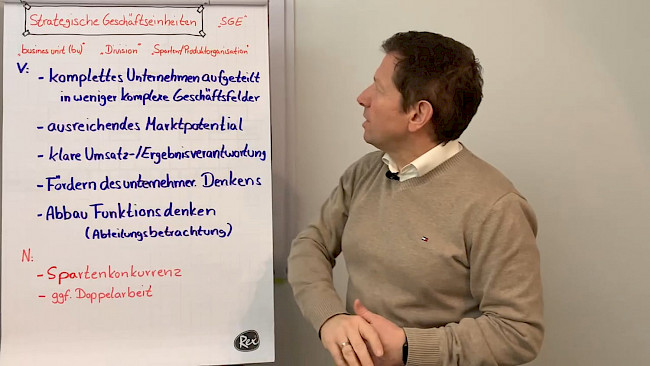 Strategische Geschäftseinheiten „SGE"
„busines unit (bu)" „Division" „Sparten/Produktorganisation"
V:
- komplettes Unternehmen aufgeteilt
in weniger komplexe Geschäftsfelder
- ausreichendes Marktpotential
- klare Umsatz-/Ergebnisverantwortung
- Fördern des unternehmer. Denkens
- Abbau Funktionsdenken
(Abteilungsbetrachtung)
N:
- Spartenkonkurrenz
- ggf. Doppelarbeit
Rex